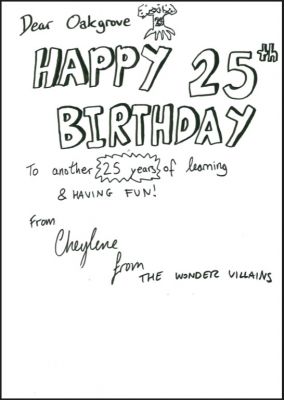 Dear Oakgrove
25
HAPPY 25th
BIRTHDAY
To another 25 years of learning
& HAVING FUN!
From
Cheylene
from
THE WONDER VILLAINS